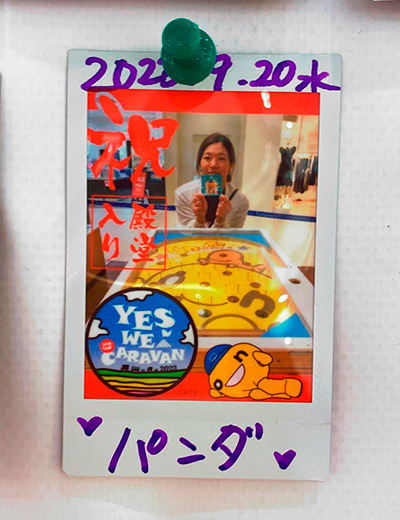 2023.9.20水
祝
殿堂
入り
YES
WE
CARAVAN
2023
パンダ